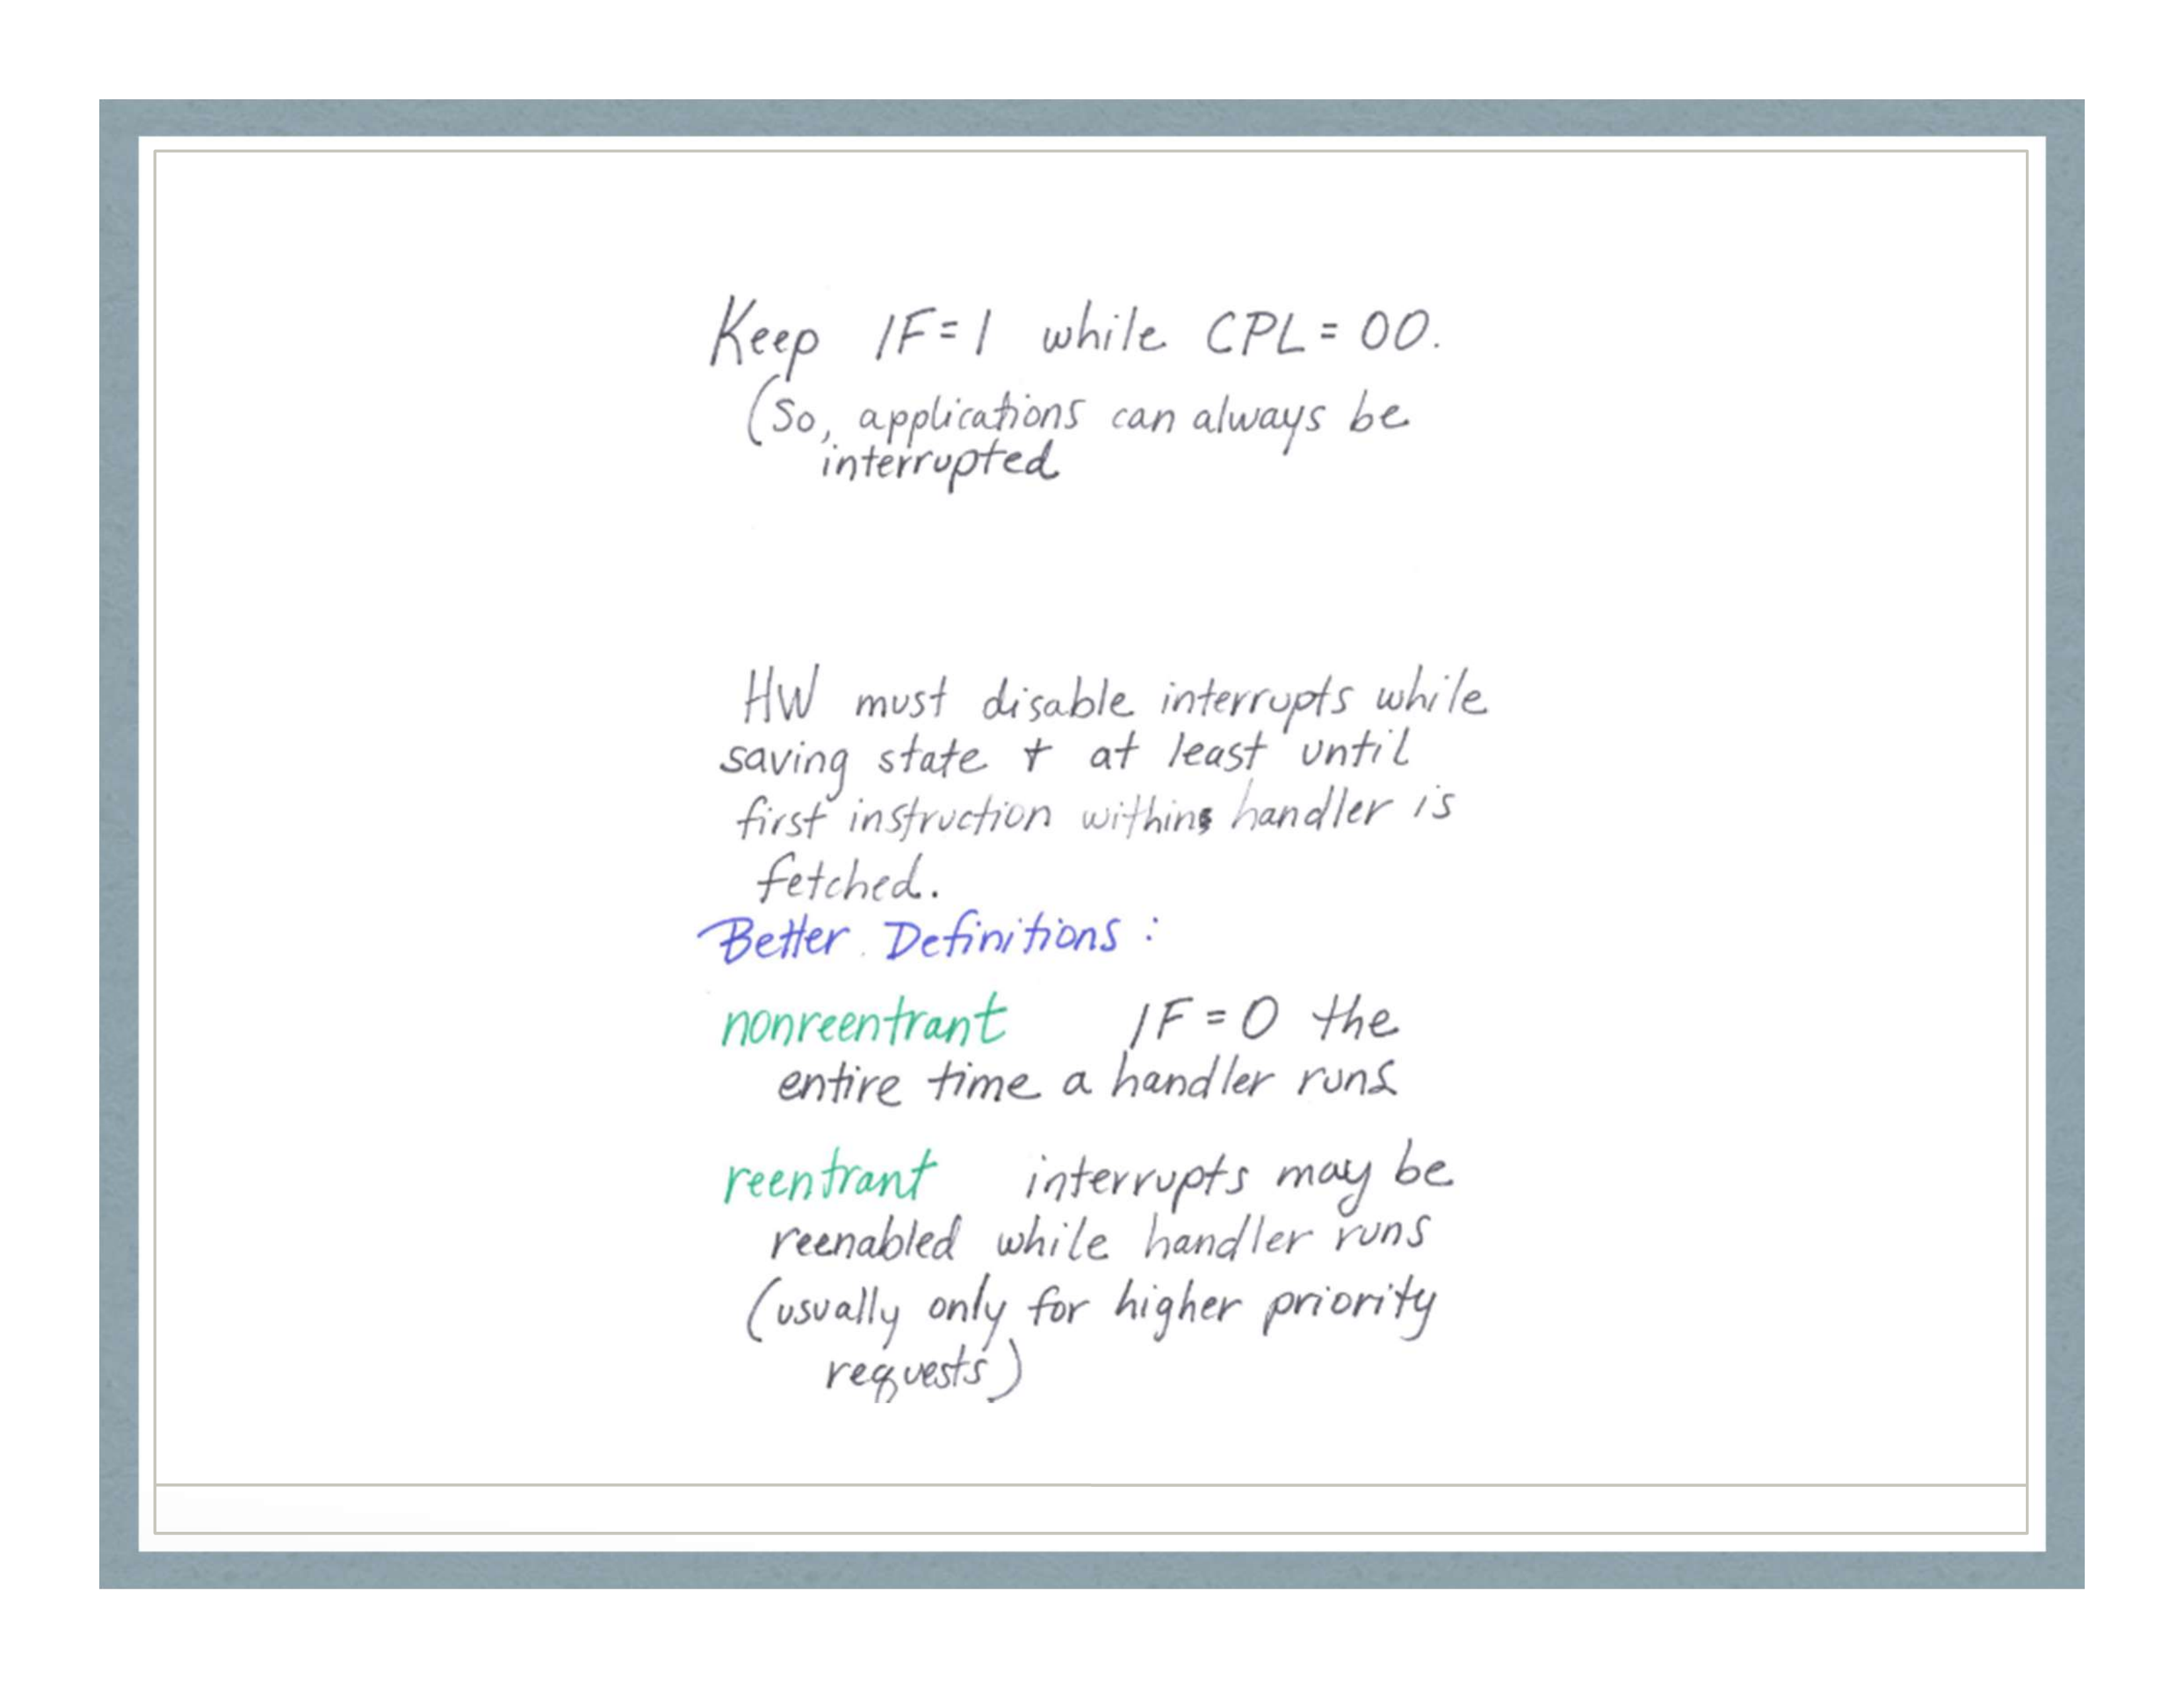 Keep IF=1 while CPL=00.
(So, applications can always be
interrupted.
HW must disable interrupts while
saving state + at least until
first instruction within handler is
fetched.
Better Definitions:
nonreentrant IF=0 the
entire time a handler runs
reentrant interrupts may be
reenabled while handler runs
(usually only for higher priority
requests)